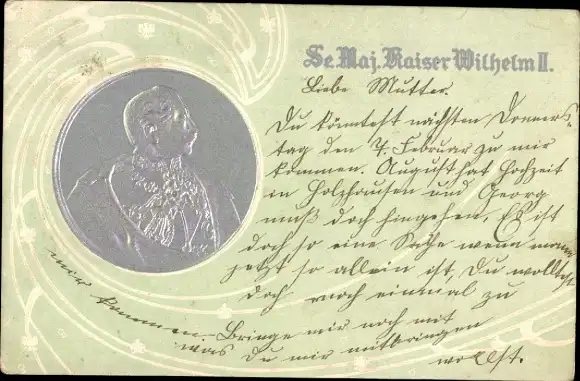 Se. Maj. Kaiser Wilhelm II.
Liebe Mutter.
Du könntest nächsten Donners-
tag den 7/ Februar zu mir
kommen. August hat Hochzeit
in Holzhausen und Georg
muß doch hingehen, Es ist
doch so eine Sache wenn mann
jetzt so allein ist, Du wolltest
doch noch einmal zu
mir kommen. Bringe mir noch mit
was Du mir mitbringen
wollst.